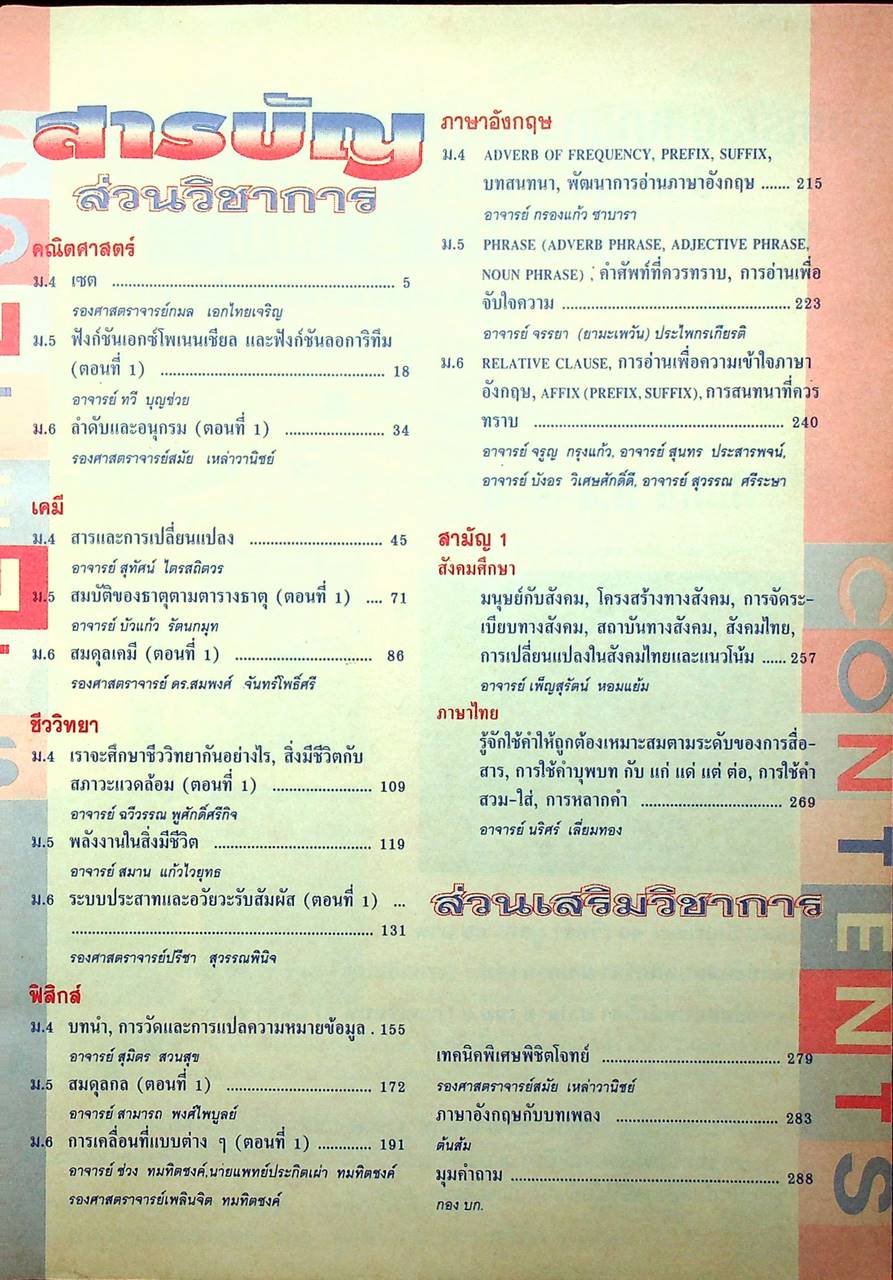 สารบัญ
ส่วนวิชาการ
คณิตศาสตร์
ม.4 เซต ........................................................ 5
รองศาสตราจารย์กมล เอกไทยเจริญ
ม.5 ฟังก์ชันเอกซ์โพเนนเชียล และฟังก์ชันลอการิทึม
(ตอนที่ 1) ........................................... 18
อาจารย์ ทวี บุญช่วย
ม.6 ลำดับและอนุกรม (ตอนที่ 1) ................... 34
รองศาสตราจารย์สมัย เหล่าวานิชย์
เคมี
ม.4 สารและการเปลี่ยนแปลง .......................... 45
อาจารย์ สุทัศน์ ไตรสถิตวร
ม.5 สมบัติของธาตุตามตารางธาตุ (ตอนที่ 1) .... 71
อาจารย์ บัวแก้ว รัตนกมุท
ม.6 สมดุลเคมี (ตอนที่ 1) ........................... 86
รองศาสตราจารย์ ดร.สมพงศ์ จันทร์โพธิ์ศรี
ชีววิทยา
ม.4 เราจะศึกษาชีววิทยากันอย่างไร, สิ่งมีชีวิตกับ
สภาวะแวดล้อม (ตอนที่ 1) ................... 109
อาจารย์ ฉวีวรรณ พูศักดิ์ศรีกิจ
ม.5 พลังงานในสิ่งมีชีวิต ............................... 119
อาจารย์ สมาน แก้วไวยุทธ
ม.6 ระบบประสาทและอวัยวะรับสัมผัส (ตอนที่ 1) ...
............................................................ 131
รองศาสตราจารย์ปรีชา สุวรรณพินิจ
ฟิสิกส์
ม.4 บทนำ, การวัดและการแปลความหมายข้อมูล . 155
อาจารย์ สุมิตร สวนสุข
ม.5 สมดุลกล (ตอนที่ 1) ............................ 172
อาจารย์ สามารถ พงศ์ไพบูลย์
ม.6 การเคลื่อนที่แบบต่าง ๆ (ตอนที่ 1) ............ 191
อาจารย์ ช่วง ทมทิตชงค์,นายแพทย์ประกิตเผ่า ทมทิตชงค์
รองศาสตราจารย์เพลินจิต ทมทิตชงค์
ภาษาอังกฤษ
ม.4 ADVERB OF FREQUENCY, PREFIX, SUFFIX,
บทสนทนา, พัฒนาการอ่านภาษาอังกฤษ ....... 215
อาจารย์ กรองแก้ว ชาบารา
ม.5 PHRASE (ADVERB PHRASE, ADJECTIVE PHRASE,
NOUN PHRASE) ; คำศัพท์ที่ควรทราบ, การอ่านเพื่อ
จับใจความ ............................................ 223
อาจารย์ จรรยา (ยามะเพวัน) ประไพกรเกียรติ
ม.6 RELATIVE CLAUSE, การอ่านเพื่อความเข้าใจภาษา
อังกฤษ, AFFIX (PREFIX, SUFFIX), การสนทนาที่ควร
ทราบ ................................................ 240
อาจารย์ จรูญ กรุงแก้ว, อาจารย์ สุนทร ประสารพจน์,
อาจารย์ บังอร วิเศษศักดิ์ดี, อาจารย์ สุวรรณ ศรีระษา
สามัญ 1
สังคมศึกษา
มนุษย์กับสังคม, โครงสร้างทางสังคม, การจัดระ-
เบียบทางสังคม, สถาบันทางสังคม, สังคมไทย,
การเปลี่ยนแปลงในสังคมไทยและแนวโน้ม ...... 257
อาจารย์ เพ็ญสุรัตน์ หอมแย้ม
ภาษาไทย
รู้จักใช้คำให้ถูกต้องเหมาะสมตามระดับของการสื่อ-
สาร, การใช้คำบุพบท กับ แก่ แด่ แต่ ต่อ, การใช้คำ
สวม-ใส่, การหลากคำ ........................... 269
อาจารย์ นริศร์ เลี่ยมทอง
ส่วนเสริมวิชาการ
เทคนิคพิเศษพิชิตโจทย์ .................................. 279
รองศาสตราจารย์สมัย เหล่าวานิชย์
ภาษาอังกฤษกับบทเพลง ............................... 283
ต้นส้ม
มุมคำถาม .................................................... 288
กอง บก.
CONTENTS